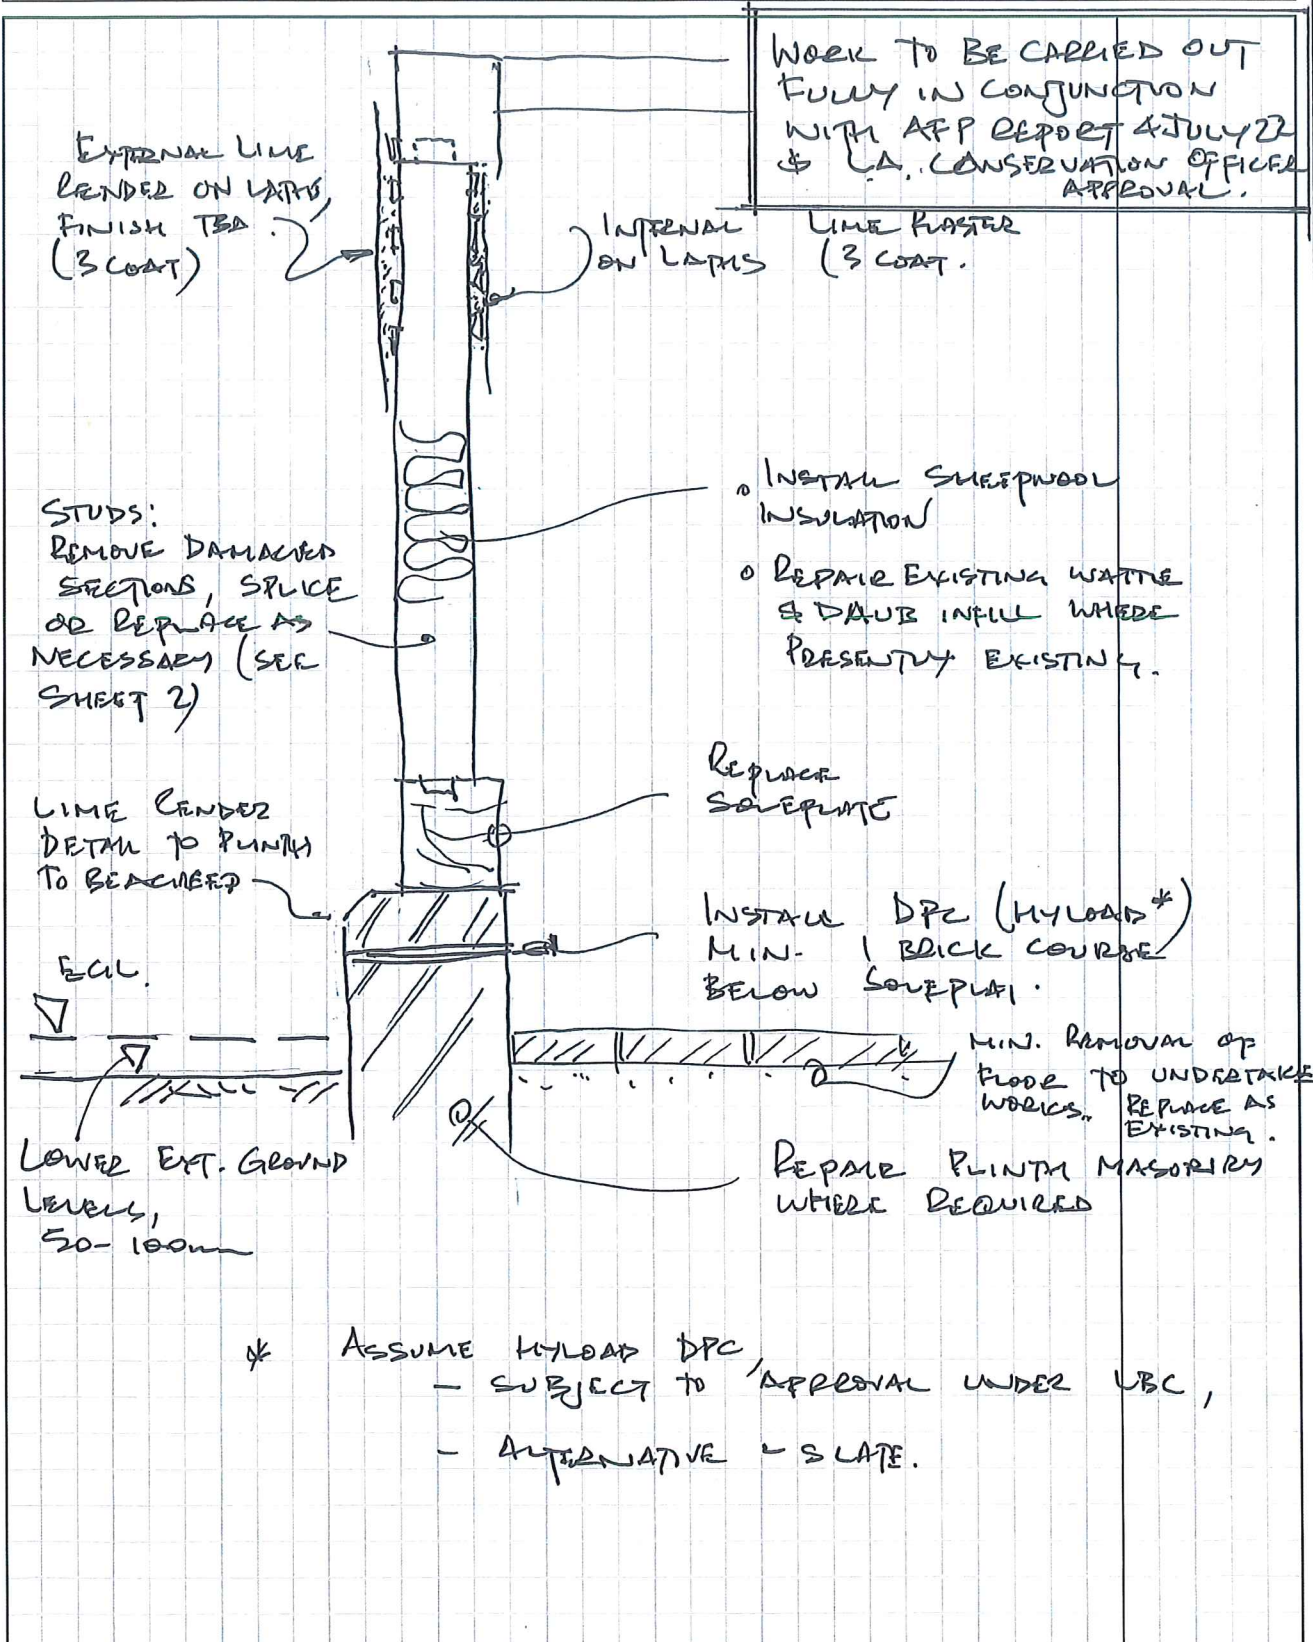 WORK TO BE CARRIED OUT
FULLY IN CONJUNCTION
WITH AFP REPORT 4 JULY 22
& LA. CONSERVATION OFFICER
APPROVAL.
EXTERNAL LIME
RENDER ON LATHS,
FINISH TBA.
(3 COAT)
INTERNAL LIME PLASTER
ON LATHS (3 COAT.
STUDS:
REMOVE DAMAGED
SECTIONS, SPLICE
OR REPLACE AS
NECESSARY (SEE
SHEET 2)
INSTALL SHEEPWOOL
INSULATION
REPAIR EXISTING WATTLE
& DAUB INFILL WHERE
PRESENTLY EXISTING.
REPLACE
SOLEPLATE
LIME RENDER
DETAIL TO PLINTH
TO BE AGREED
INSTALL DPC (HYLOAD*)
MIN. 1 BRICK COURSE
BELOW
EGL.
MIN. REMOVAL OF
FLOOR TO UNDERTAKE
WORKS. REPLACE AS
EXISTING.
LOWER EXT. GROUND
LEVELS,
50-100mm
REPAIR PLINTH MASONRY
WHERE REQUIRED
* ASSUME HYLOAD DPC,
- SUBJECT TO APPROVAL UNDER LBC,
- ALTERNATIVE - SLATE.